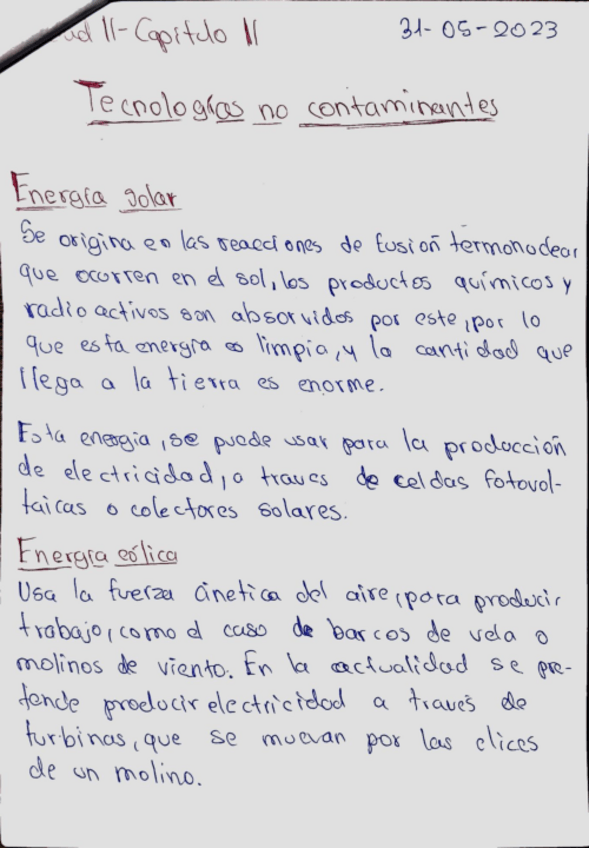 ad II - Capítulo II
31-05-2023
Tecnologías no contaminantes
Energía solar
Se origina en las reacciones de fusión termonuclear
que ocurren en el sol, los productos químicos y
radio activos son absorvidos por este, por lo
que esta energía es limpia, y la cantidad que
llega a la tierra es enorme.
Esta energia, se puede usar para la producción
de electricidad, a traves de celdas fotovol-
taicas o colectores solares.
Energía eólica
Usa la fuerza cinetica del aire, para producir
trabajo, como el caso de barcos de vela o
molinos de viento. En la actualidad se pre-
tende producir electricidad a través de
turbinas, que se muevan por las elices
de un molino.